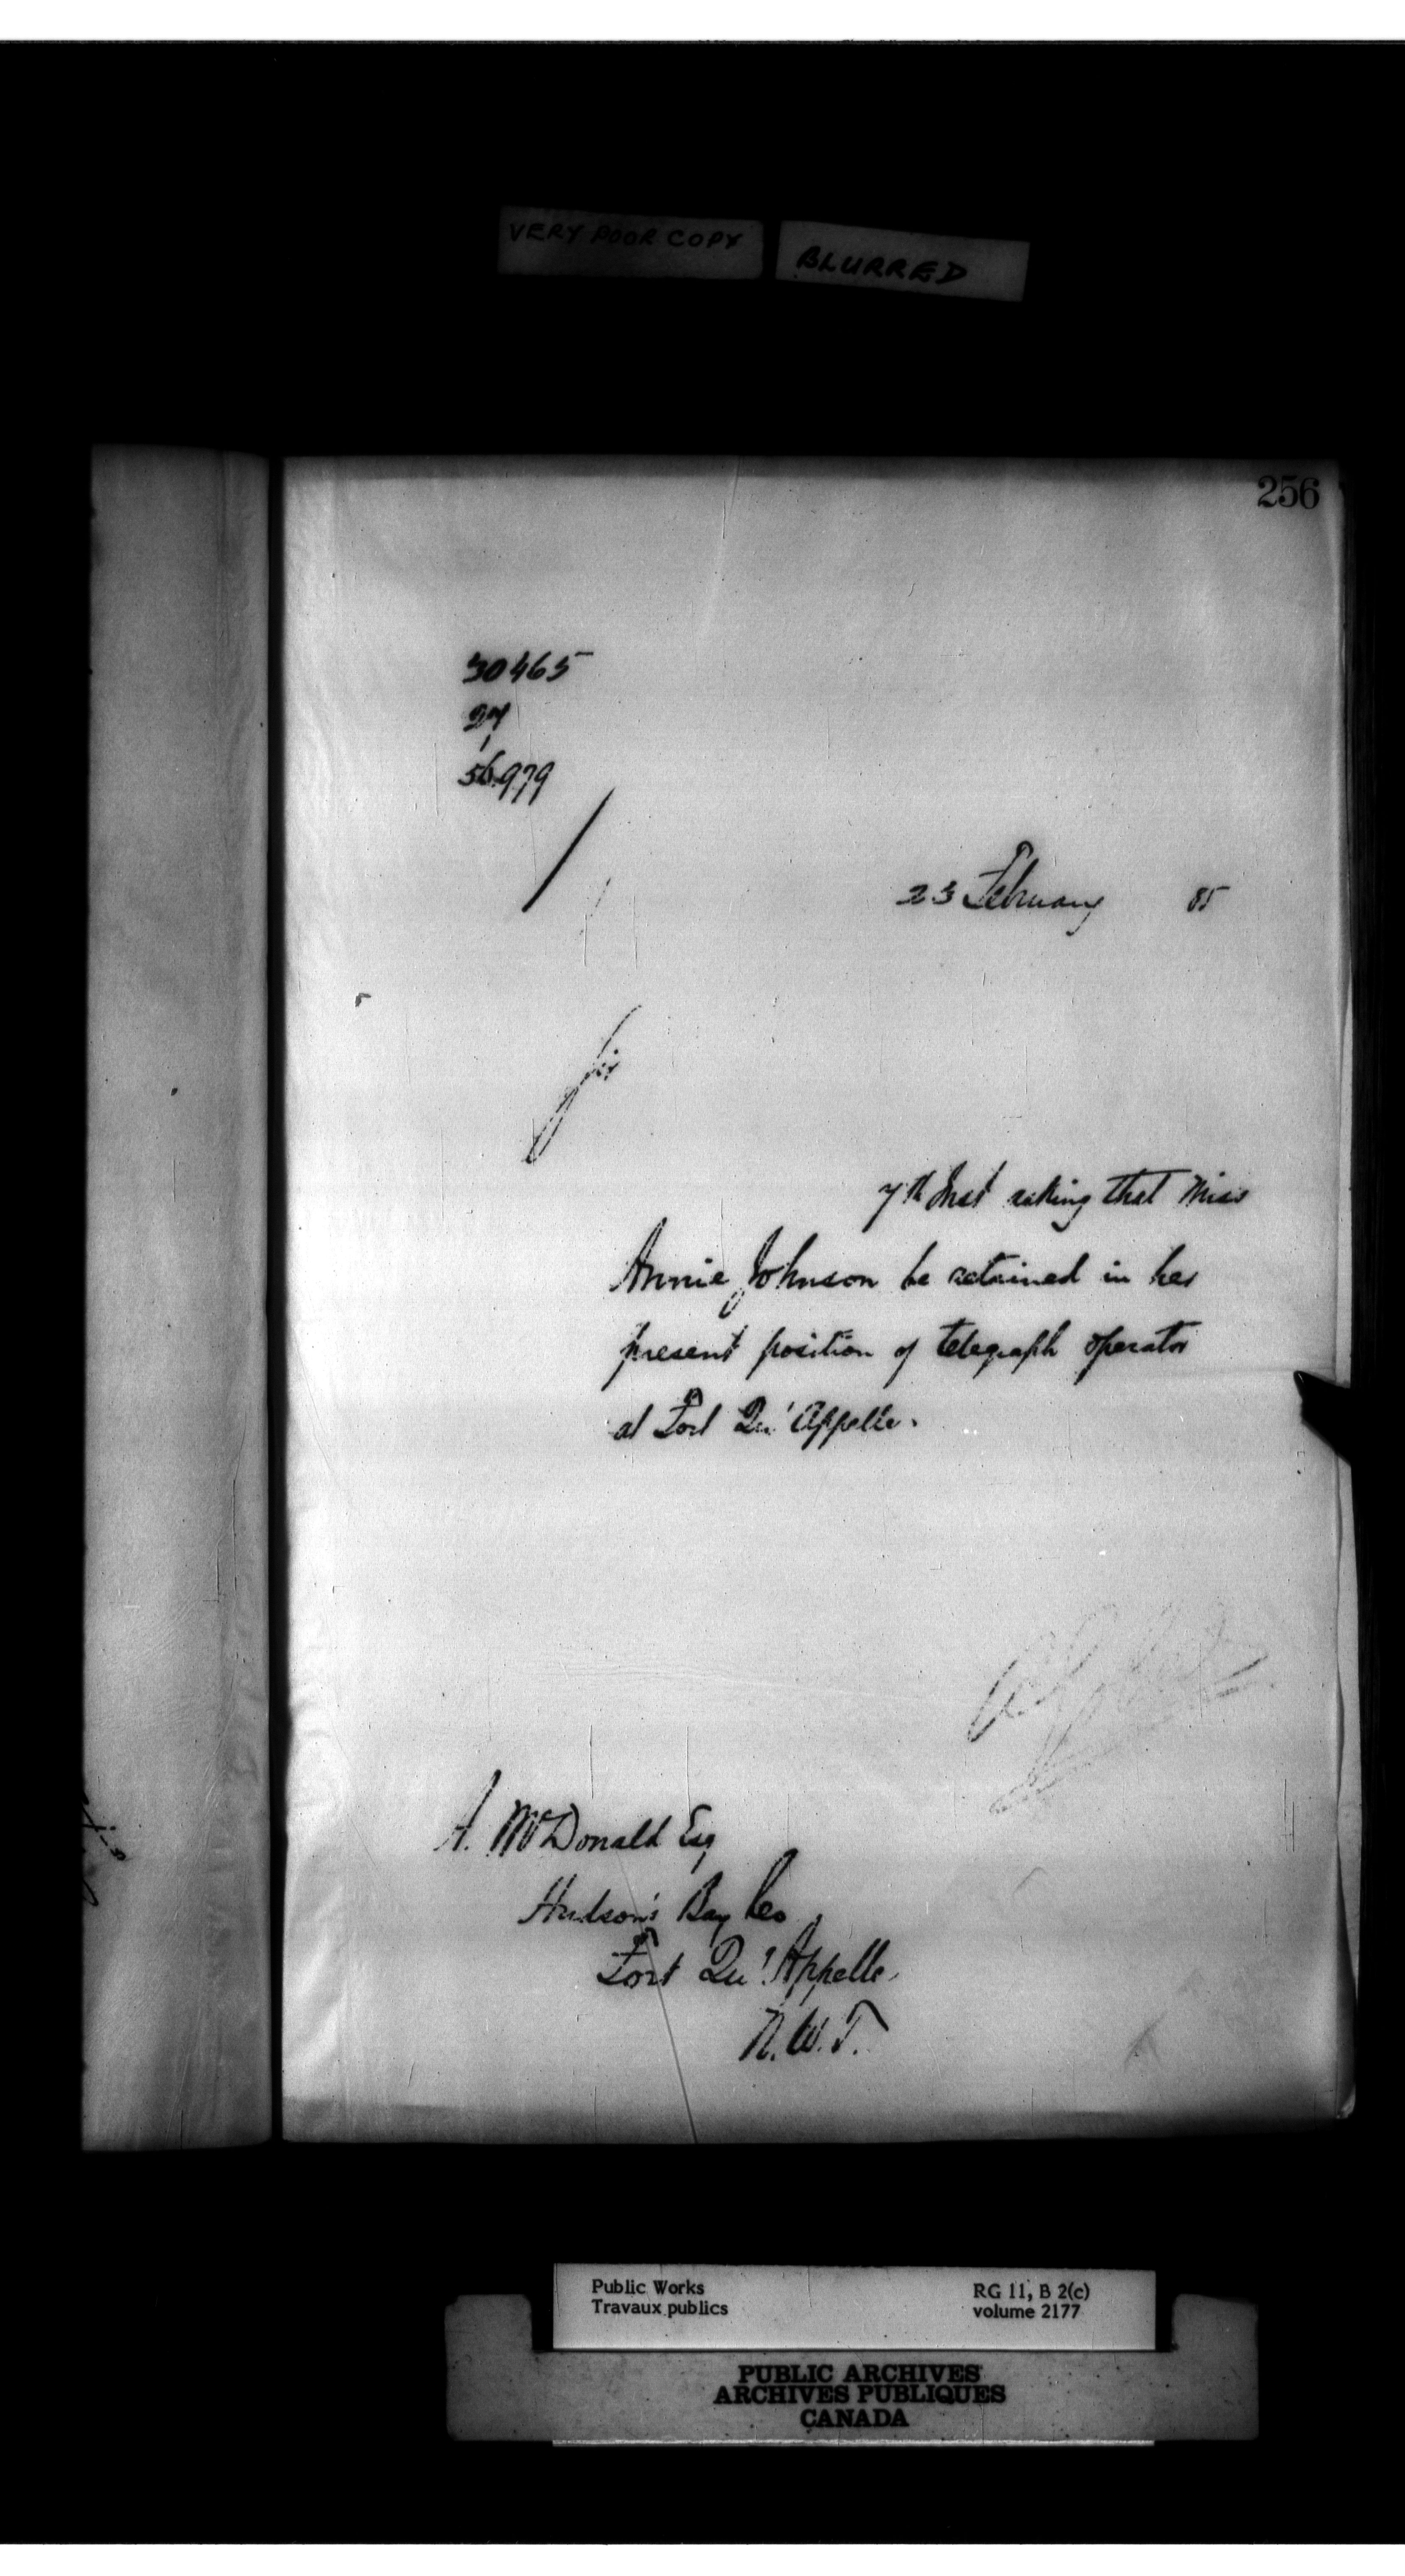 VERY POOR COPY
BLURRED
256
30465
27
56979
23 February 85
Sir
7th Inst asking that Miss
Annie Johnson be retained in her
present position of telegraph operator
at Fort Qu'Appelle.
A. McDonald Esq
Hudson's Bay Co
Fort Qu'Appelle.
N.W.T.
Public Works
Travaux publics
RG 11, B 2(c)
volume 2177
PUBLIC ARCHIVES
ARCHIVES PUBLIQUES
CANADA